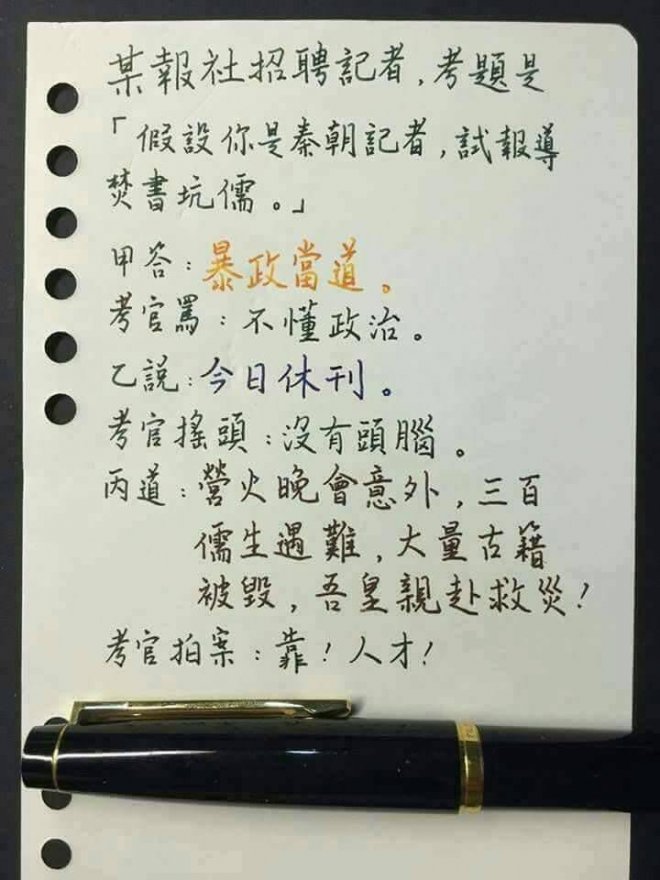 某報社招聘記者，考題是
「假設你是秦朝記者，試報導
焚書坑儒。」
甲答：暴政當道。
考官罵：不懂政治。
乙說：今日休刊。
考官搖頭：沒有頭腦。
丙道：營火晚會意外，三百
儒生遇難，大量古籍
被毀，吾皇親赴救災！
考官拍案：靠！人才！